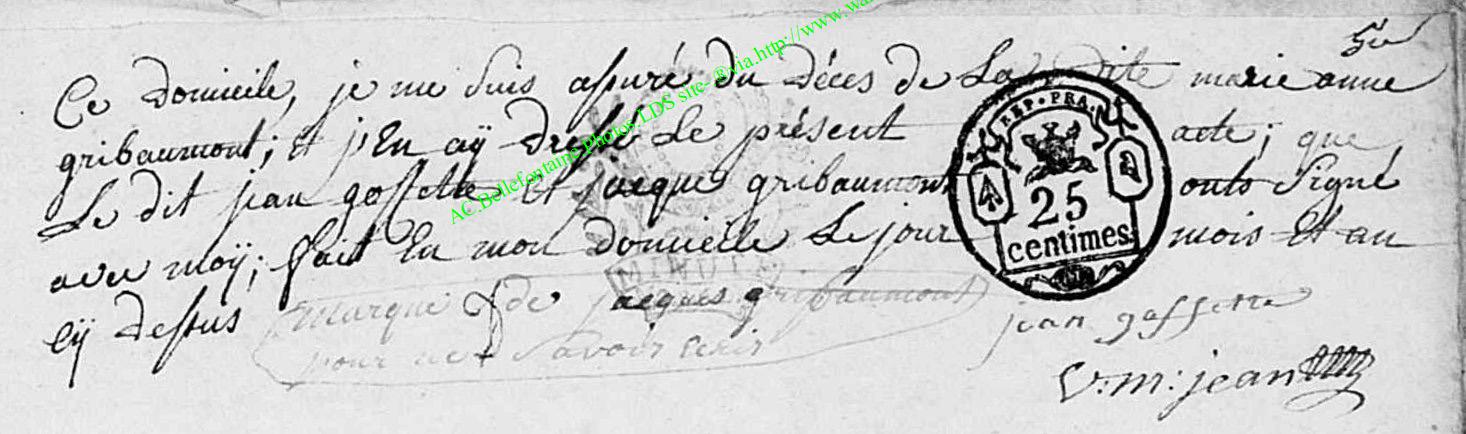 Ce domicile, je me suis assuré du déces de La dite marie anne
gribaumont; et j'En aÿ dressé Le présent acte; que
Le dit jean gossette Et jacque gribaumont onts signé
avec moÿ; fait En mon domicile Le jour mois Et an
cÿ dessus
marque de jacques gribaumont
pour ne savoir ecrir
jean gossette
V: m: jean
REP. FRA.
25
centimes
AC.Bellefontaine Photos LDS site-®via.http://www.wa